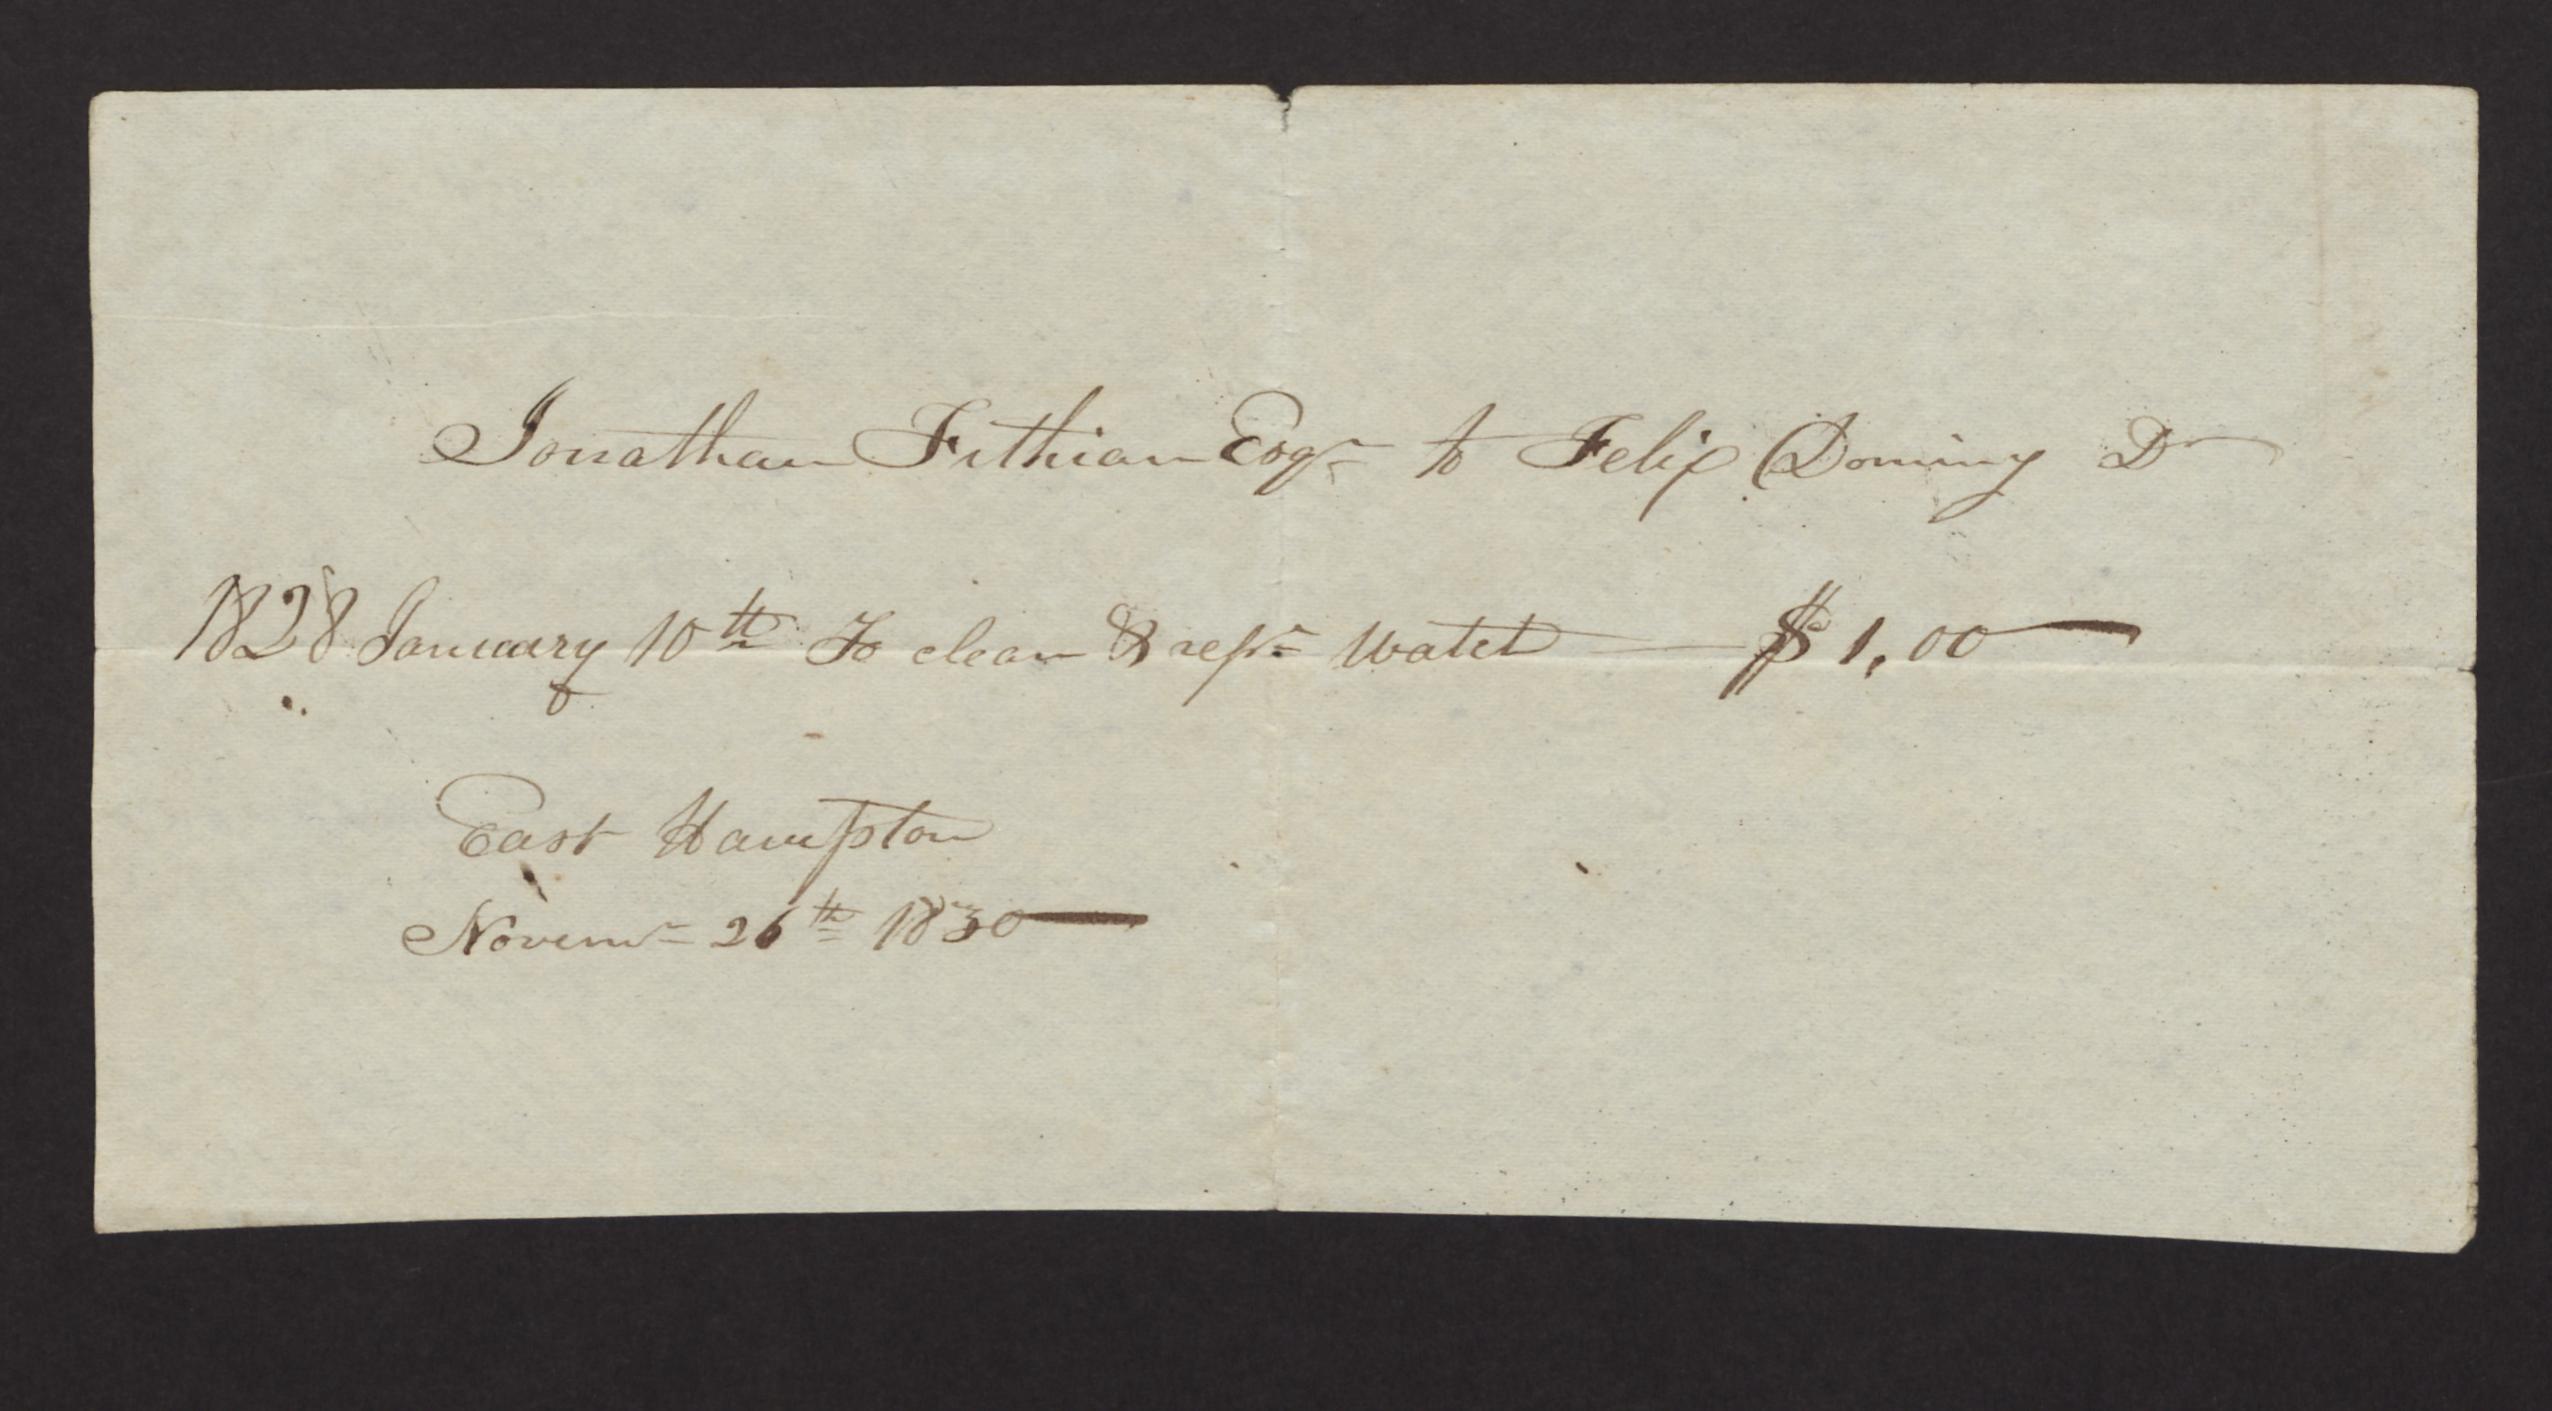 Jonathan Fithian Esqr to Felix Dominy Dr
1828 January 10th To clean & repr Watch — $1,00
East Hampton
Novemr 26th 1830